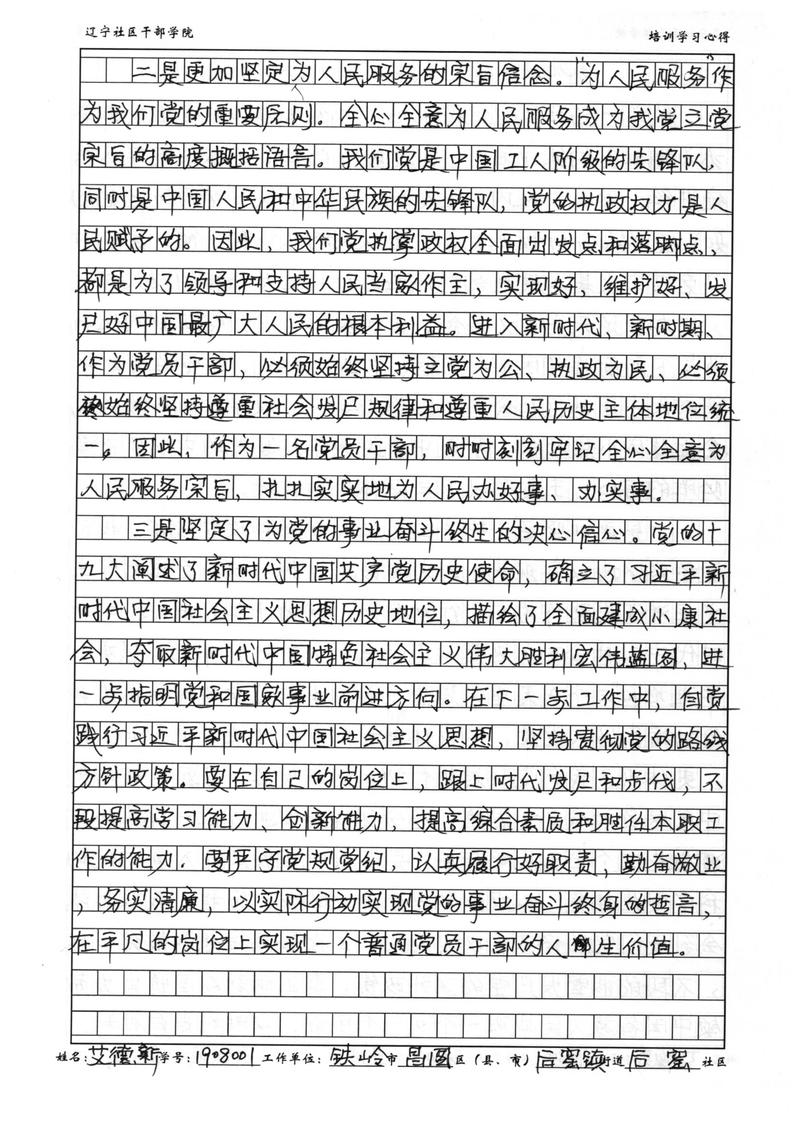 辽宁社区干部学院 培训学习心得
二是更加坚定为人民服务的宗旨信念。"为人民服务作
为我们党的重要原则。全心全意为人民服务成为我党立党
宗旨的高度概括语言。我们党是中国工人阶级的先锋队,
同时是中国人民和中华民族的先锋队,党的执政权力是人
民赋予的。因此,我们党执掌政权全面出发点和落脚点,
都是为了领导和支持人民当家作主,实现好、维护好、发
展好中国最广大人民的根本利益。进入新时代、新时期、
作为党员干部,必须始终坚持立党为公、执政为民、必须
始终坚持尊重社会发展规律和尊重人民历史主体地位统
一。因此,作为一名党员干部,时时刻刻牢记全心全意为
人民服务宗旨,扎扎实实地为人民办好事、办实事。
三是坚定了为党的事业奋斗终生的决心信心。党的十
九大阐述了新时代中国共产党历史使命,确立了习近平新
时代中国社会主义思想历史地位,描绘了全面建成小康社
会,夺取新时代中国特色社会主义伟大胜利宏伟蓝图,进
一步指明党和国家事业前进方向。在下一步工作中,自觉
践行习近平新时代中国社会主义思想,坚持贯彻党的路线
方针政策。要在自己的岗位上,跟上时代发展和步伐,不
段提高学习能力、创新能力,提高综合素质和胜任本职工
作的能力.要严守党规党纪,认真履行好职责,勤奋敬业
,务实清廉,以实际行动实现党的事业奋斗终身的誓言,
在平凡的岗位上实现一个普通党员干部的人生价值。
姓名:艾德新学号:1908001工作单位:铁岭市昌图区(县、市)后窑镇街道后窑社区